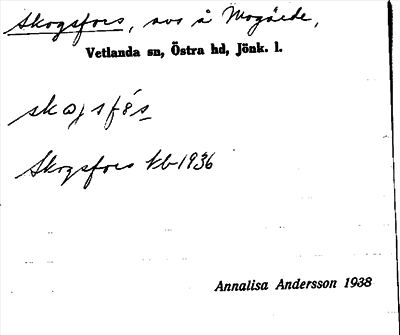 Skogsfors, avs å Mogärde,
Vetlanda sn, Östra hd, Jönk. l.
skogsfós
Skogsfors kb 1936
Annalisa Andersson 1938